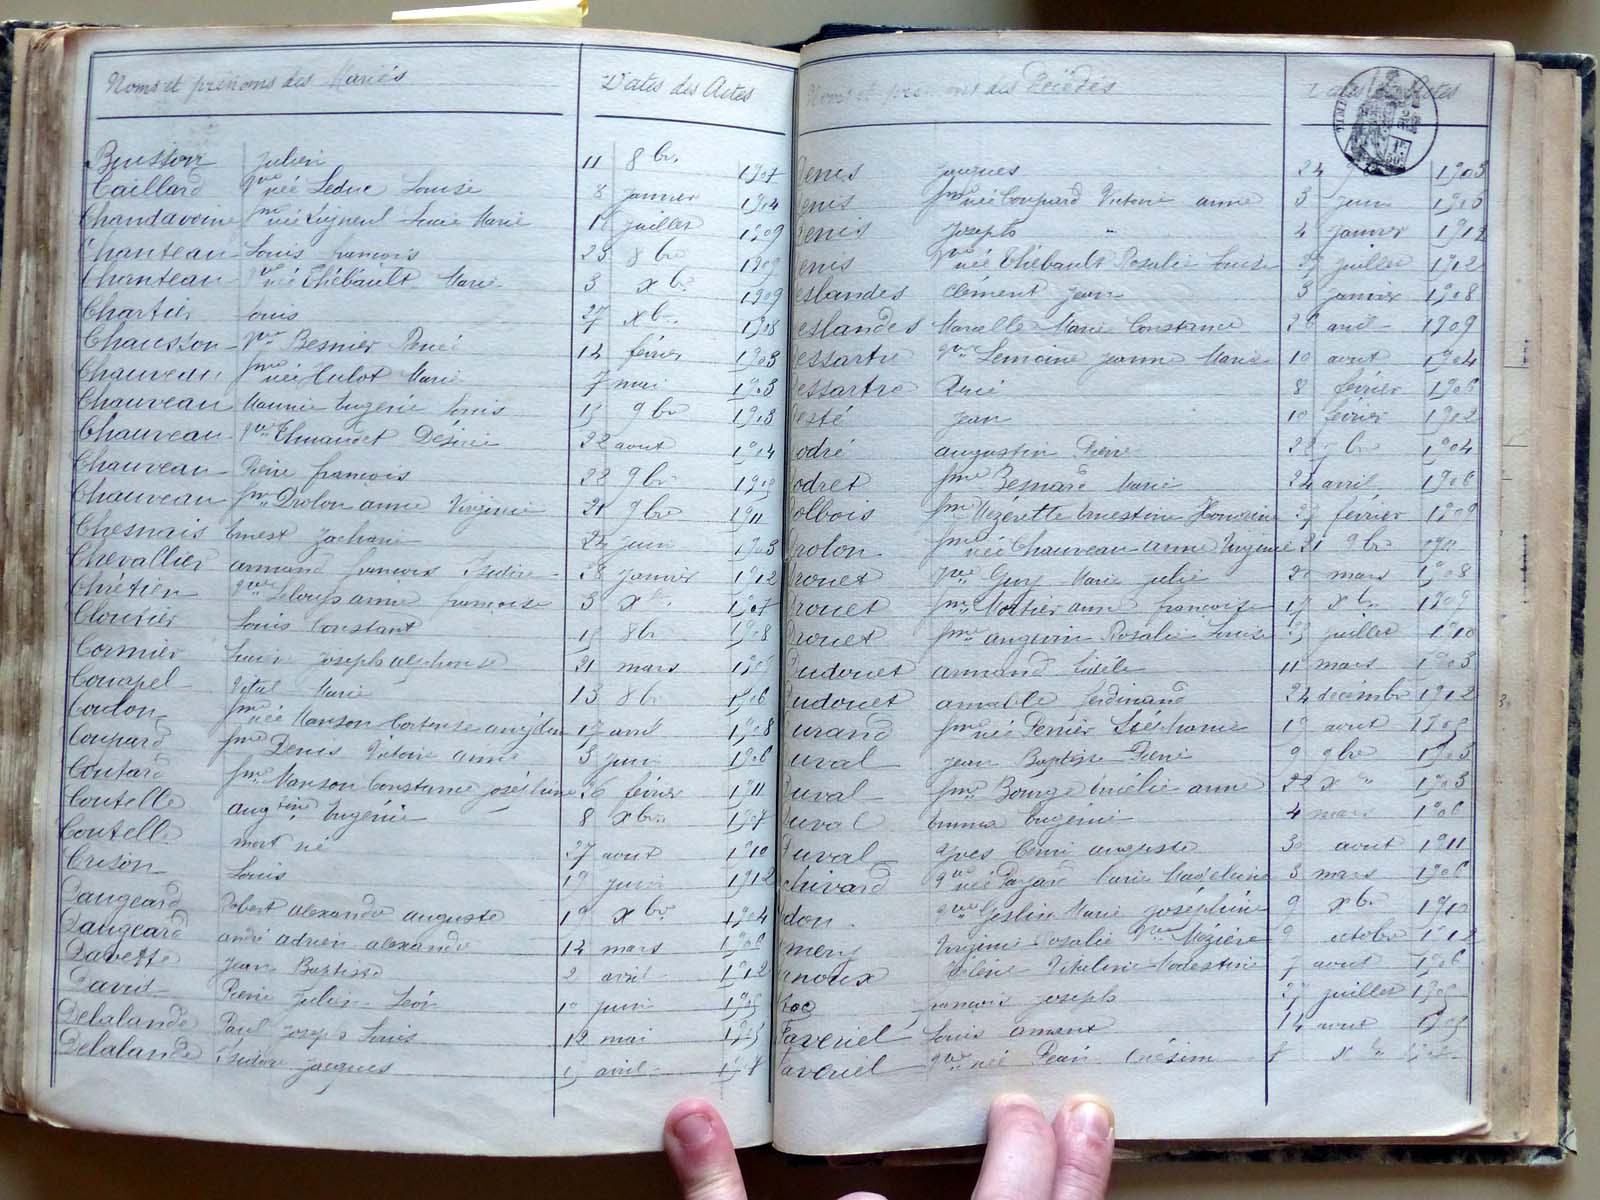 Noms et prénoms des Mariés Dates des Actes
Buisson Julien 11 8bre 1907
Caillard Vve née Leduc Louise 8 janvier 1904
Chandavoine fme née Ligneul Lucie Marie 1r juillet 1909
Chanteau Louis françois 23 8bre 1909
Chanteau Vve née Thébault Marie 3 xbre 1909
Chartier Louis 27 xbre 1908
Chausson Vve Besnier René 14 février 1903
Chauveau fme née Hulot Marie 7 mai 1903
Chauveau Maurice Eugène Louis 15 9bre 1903
Chauveau Vve Thuaudet Désirée 22 aout 1904
Chauveau Pierre françois 22 9bre 1905
Chauveau fme Drolon anne Virginie 21 9bre 1911
Chesnais Ernest Zacharie 24 juin 1903
Chevallier armand françois Isidore 28 janvier 1912
Chrétien Vve Leloup anne françoise 3 xbre 1907
Clouvier Louis Constant 15 8bre 1908
Cormier Lucien Joseph alphonse 21 mars 1905
Couapel Vital Marie 13 8bre 1906
Coulon fme née Manson 17 avril 1908
Coupard fme Denis Victoire anne 3 juin 1906
Coutard fme Manson Constance joséphine 26 février 1911
Coutelle augtine Eugénie 8 xbre 1907
Coutelle mort né 27 aout 1910
Crison Louis 19 juin 1912
Daugeard Robert alexandre auguste 19 xbre 1904
Daugeard andré adrien alexandre 14 mars 1906
Davette Jean Baptiste 2 avril 1912
David Pierre Julien Léon 10 juin 1905
Delalande Paul Joseph Louis 12 mai 1905
Delalande Isidore Jacques 15 avril 1908
Noms et prénoms des Décédés Dates des Actes
Denis Jacques 24 1903
Denis fme née Coupard Victoire anne 3 juin 1906
Denis Joseph 4 janvier 1912
Denis Vve née Thébault Rosalie Louise 27 juillet 1912
Deslandes Clément Jean 3 janvier 1908
Deslandes Marcelle Marie Constance 26 avril 1909
Dessartre Vve Lemoine Jeanne Marie 10 aout 1904
Dessartre René 8 février 1906
Desté Jean 10 février 1902
Dodré augustin Pierre 22 9bre 1904
Dodret fme Besnard Marie 24 avril 1906
Dolbois fme Mézerette Ernestine Honorine 27 février 1909
Drolon fme née Chauveau anne Virginie 21 9bre 1911
Drouet Vve Guy Marie julie 21 mars 1908
Drouet fme Mortier anne françoise 17 xbre 1909
Drouet fme anguin Rosalie Louise 13 juillet 1910
Dudouet armand fidèle 11 mars 1903
Dudouet amable ferdinand 24 décembre 1912
Durand fme née Perrier Stéphanie 19 aout 1905
Duval Jean Baptiste René 9 9bre 1903
Duval fme Bourge Emélie anne 22 xbre 1903
Duval Emma Eugénie 4 mars 1906
Duval Yves Henri auguste 30 aout 1911
Echivard Vve née Marie Madeleine 3 mars 1906
Edon Vve Geslin Marie Joséphine 9 xbre 1910
Emery Virginie Rosalie Vve Mézière 9 octobre 1912
Ernoux Hélène Modestine 7 aout 1906
françois joseph 27 juillet 1905
Faveriel Louis amant 14 aout 1905
Faveriel Vve née 8 xbre